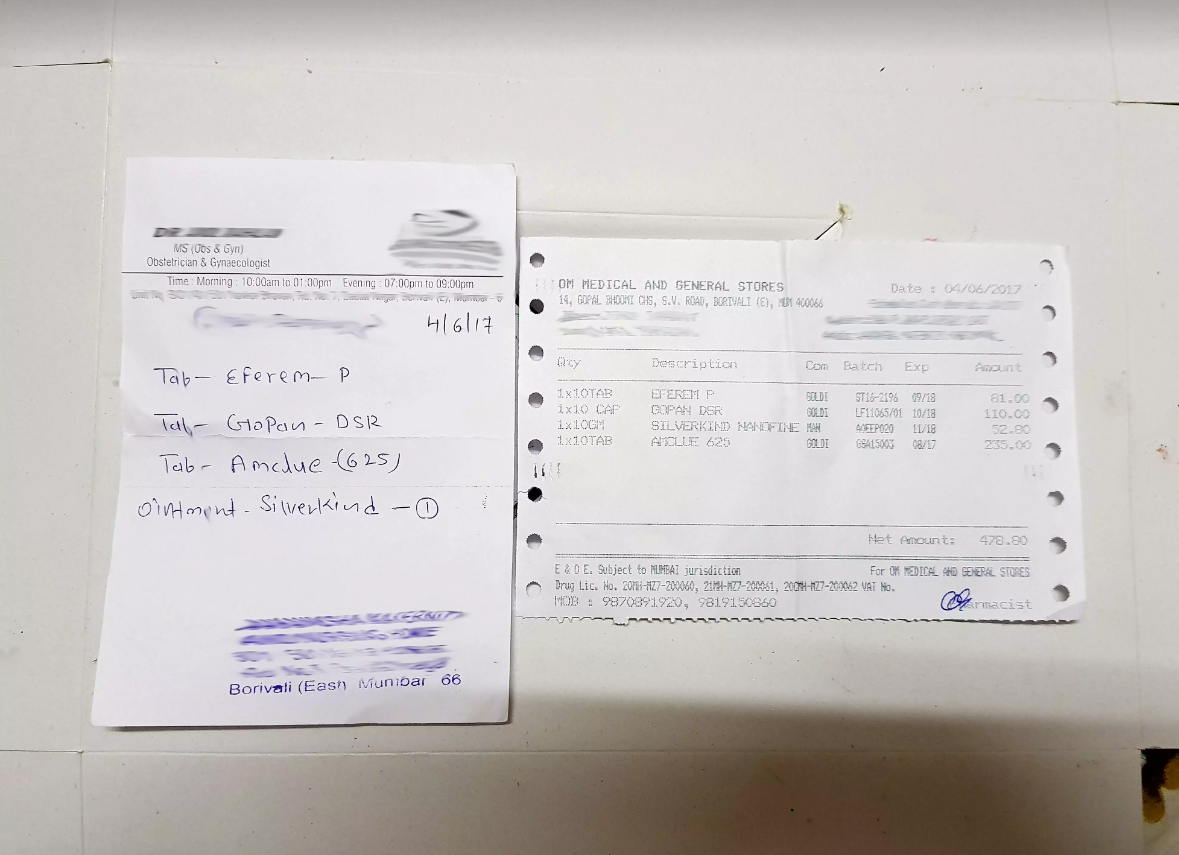 MS (Obs & Gyn)
Obstetrician & Gynaecologist
Time : Morning : 10:00am to 01:00pm Evening : 07:00pm to 09:00pm
4/6/17
Tab- Eferem- P
Tab- GoPan- DSR
Tab- Amclue-(625)
Ointment- Silverkind - 1
Borivali (East) Mumbai 66
OM MEDICAL AND GENERAL STORES
Date : 04/06/2017
14, GOPAL BHOOMI CHS, S.V. ROAD, BORIVALI (E), MUM 400066
Qty Description Com Batch Exp Amount
1x10TAB EFEREM P GOLDI ST16-2196 09/18 81.00
1x10 CAP GOPAN DSR GOLDI LF11065/01 10/18 110.00
1x10GM SILVERKIND NANOFINE MAN AOEEP020 11/18 52.80
1x10TAB AMCLUE 625 GOLDI GSA15003 08/17 235.00
Net Amount: 478.80
E & O E. Subject to MUMBAI jurisdiction For OM MEDICAL AND GENERAL STORES
Drug Lic. No. 20MH-MZ7-200060, 21MH-MZ7-200061, 20CMH-MZ7-200062 VAT No.
MOB : 9870891920, 9819150860
Pharmacist